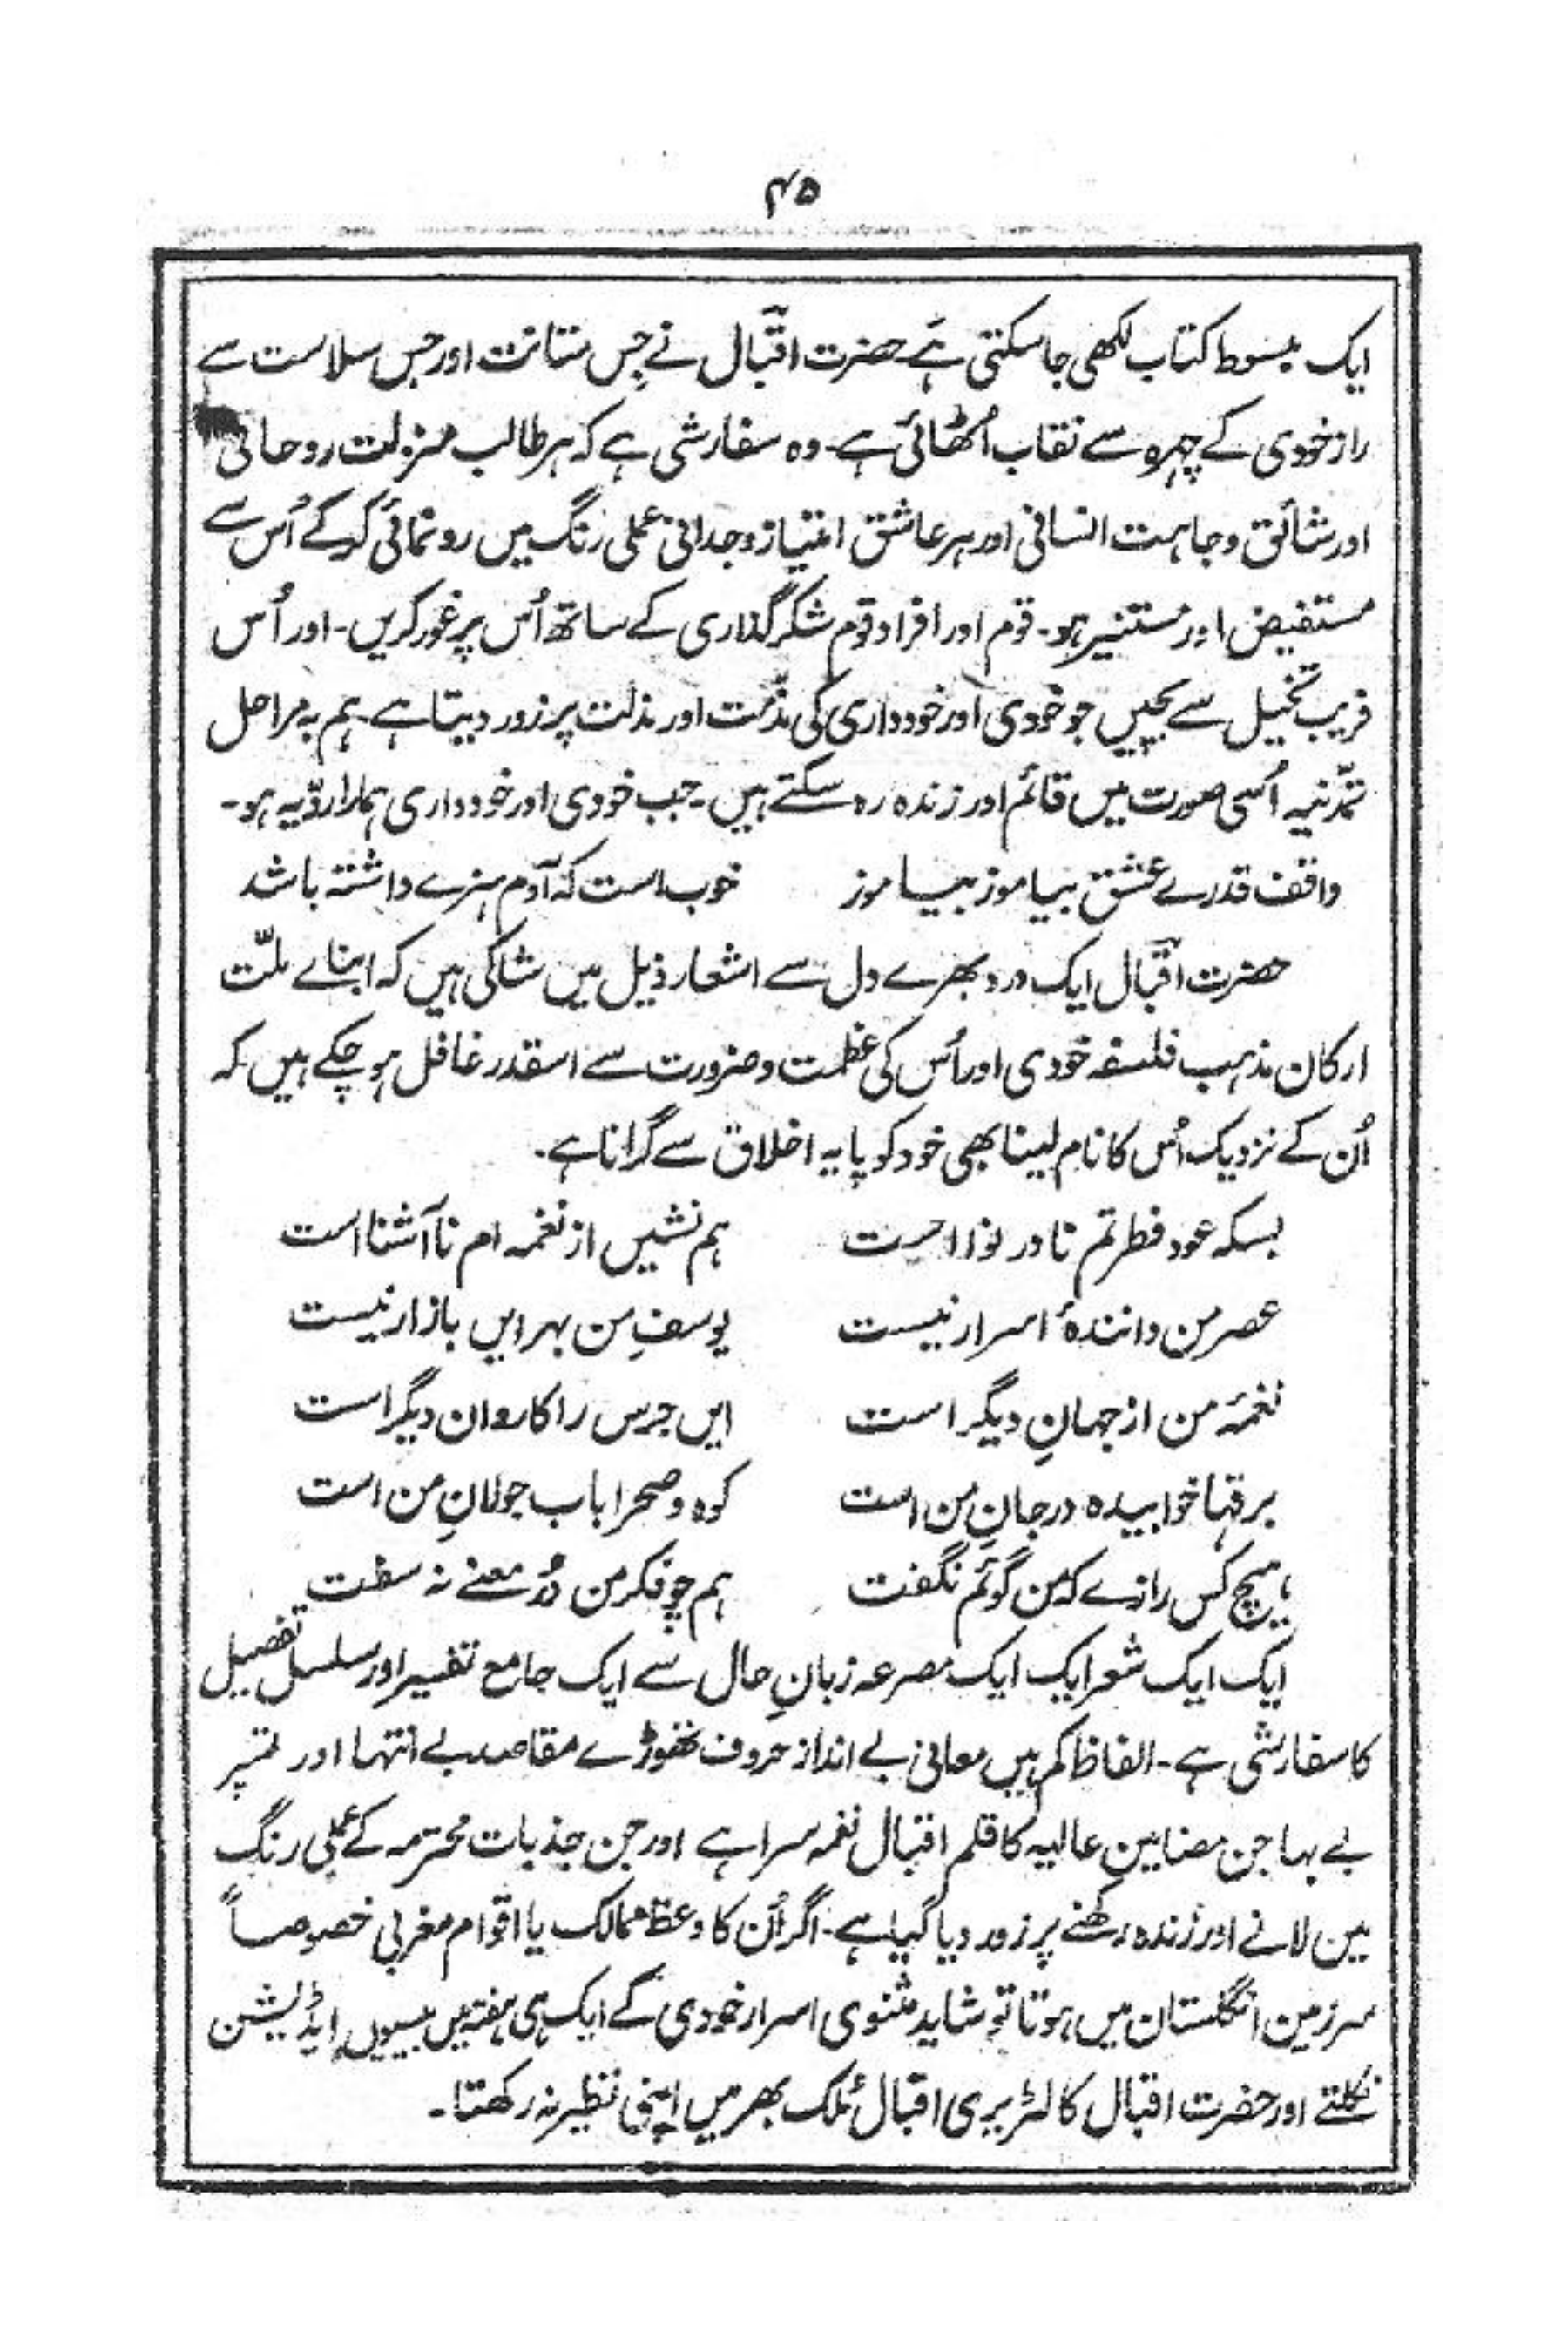 ۴۵
ایک مبسوط کتاب لکھی جا سکتی ہے۔ حضرت اقبال نے جس متانت اور جس سلاست سے
راز خودی کے چہرہ سے نقاب اُٹھائی ہے۔ وہ سفارشی ہے کہ ہر طالب منزلت روحانی
اور شائق وجاہت انسانی اور ہر عاشق امتیاز وجدانی عملی رنگ میں رونمائی کرکے اُس سے
مستفیض اور مستنیر ہو۔ قوم اور افراد قوم شکر گذاری کے ساتھ اُس پر غور کریں۔ اور اُس
فریب تخیل سے بچیں جو خودی اور خودداری کی مذمّت اور مذلت پر زور دیتا ہے۔ ہم بہ مراحل
تمدّنیہ اُسی صورت میں قائم اور زندہ رہ سکتے ہیں۔ جب خودی اور خودداری ہمارا روّیہ ہو۔
واقف قدرے عشق بیاموز بیاموز خوب است کہ آدم ہنرے داشتہ باشد
حضرت اقبال ایک درد بھرے دل سے اشعار ذیل میں شاکی ہیں کہ ابنائے ملّت
ارکان مذہب فلسفہ خودی اور اُس کی عظمت و ضرورت سے اسقدر غافل ہو چکے ہیں کہ
اُن کے نزدیک اُس کا نام لینا بھی خود کو پایہ اخلاق سے گرانا ہے۔
بسکہ عود فطرتم نادر نوا است ہم نشیں از نغمہ ام ناآشنا است
عصر من دانندۂ اسرار نیست یوسفِ من بہر ایں بازار نیست
نغمۂ من از جہانِ دیگر است ایں جرس را کاروان دیگر است
برقہا خوابیدہ در جانِ من است کوہ و صحرا باب جولانِ من است
ہیچ کس رازے کہ من گوئم نگفت ہم چو فکر من دُرِ معنے نہ سفت
ایک ایک شعر ایک ایک مصرعہ زبانِ حال سے ایک جامع تفسیر اور سلسل تفصیل
کا سفارشی ہے۔ الفاظ کم ہیں معانی بے انداز حروف تھوڑے مقاصد بے انتہا اور
بے بہا جن مضامین عالیہ کا قلم اقبال نغمہ سرا ہے اور جن جذبات محترمہ کے عملی رنگ
میں لانے اور زندہ رکھنے پر زور دیا گیا ہے۔ اگر اُن کا وعظ ممالک یا اقوام مغربی خصوصاً
سرزمین انگلستان میں ہوتا تو شاید مثنوی اسرار خودی کے ایک ہی ہفتہ میں بیسیوں ایڈیشن
نکلتے اور حضرت اقبال کا لٹریری اقبال مُلک بھر میں اپنی نظیر نہ رکھتا۔